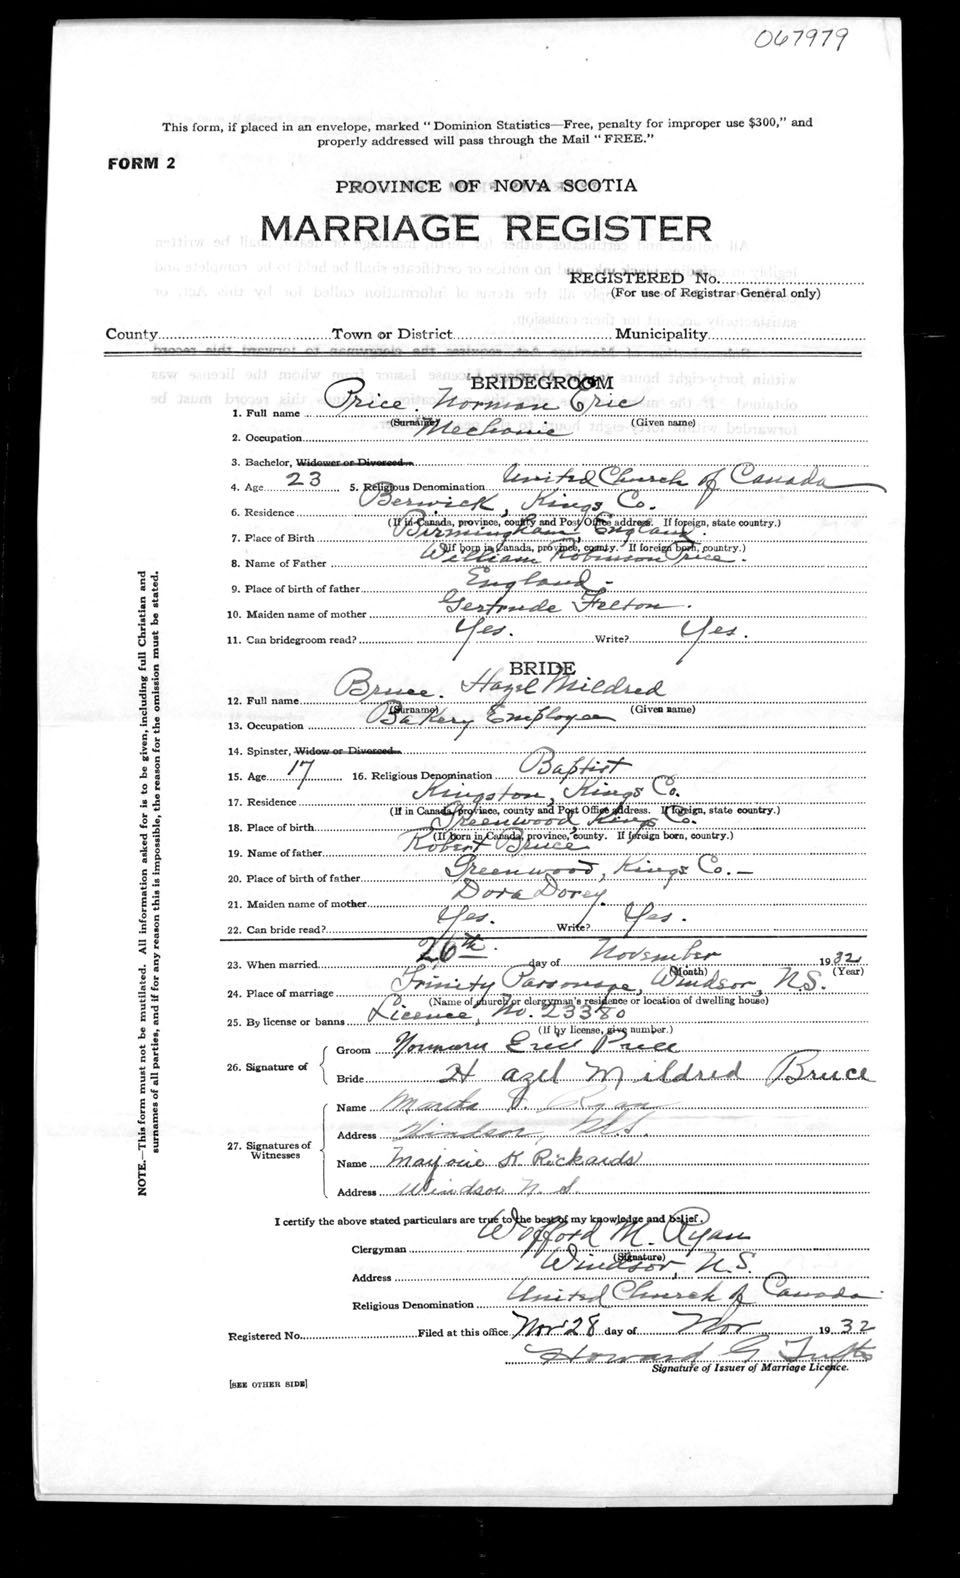 067979
This form, if placed in an envelope, marked "Dominion Statistics—Free, penalty for improper use $300," and
properly addressed will pass through the Mail "FREE."
FORM 2
PROVINCE OF NOVA SCOTIA
MARRIAGE REGISTER
REGISTERED No.
(For use of Registrar General only)
County Town or District Municipality
BRIDEGROOM
1. Full name Price. Norman Eric
(Surname) (Given name)
2. Occupation Mechanic
3. Bachelor, Widower or Divorced
4. Age 23 5. Religious Denomination United Church of Canada
6. Residence Berwick, Kings Co.
(If in Canada, province, county and Post Office address. If foreign, state country.)
7. Place of Birth Birmingham, England.
(If born in Canada, province, county. If foreign born, country.)
8. Name of Father William Robinson Price.
9. Place of birth of father England -
10. Maiden name of mother Gertrude Felton.
11. Can bridegroom read? Yes. Write? Yes.
BRIDE
12. Full name Bruce. Hazel Mildred
(Surname) (Given name)
13. Occupation Bakery Employee
14. Spinster, Widow or Divorced
15. Age 17 16. Religious Denomination Baptist
17. Residence Kingston, Kings Co.
(If in Canada, province, county and Post Office address. If foreign, state country.)
18. Place of birth Greenwood, Kings Co.
(If born in Canada, province, county. If foreign born, country.)
19. Name of father Robert Bruce
20. Place of birth of father Greenwood, Kings Co. —
21. Maiden name of mother Dora Dorey
22. Can bride read? Yes. Write? Yes.
23. When married 26th. day of November 1932
(Month) (Year)
24. Place of marriage Trinity Parsonage, Windsor, N.S.
(Name of church or clergyman's residence or location of dwelling house)
25. By license or banns Licence, No. 23380
(If by license, give number.)
26. Signature of
Groom Norman Eric Price
Bride Hazel Mildred Bruce
27. Signatures of
Witnesses
Name Ryan
Address Windsor, N.S.
Name Marjorie H Rickards
Address Windsor N.S.
I certify the above stated particulars are true to the best of my knowledge and belief.
Clergyman Wofford M. Ryan
(Signature)
Address Windsor, N.S.
Religious Denomination United Church of Canada
Registered No. Filed at this office Nov 28 day of Nov 1932
Howard G Tufts
Signature of Issuer of Marriage Licence.
[SEE OTHER SIDE]
NOTE.—This form must not be mutilated. All information asked for is to be given, including full Christian and
surnames of all parties, and if for any reason this is impossible, the reason for the omission must be stated.